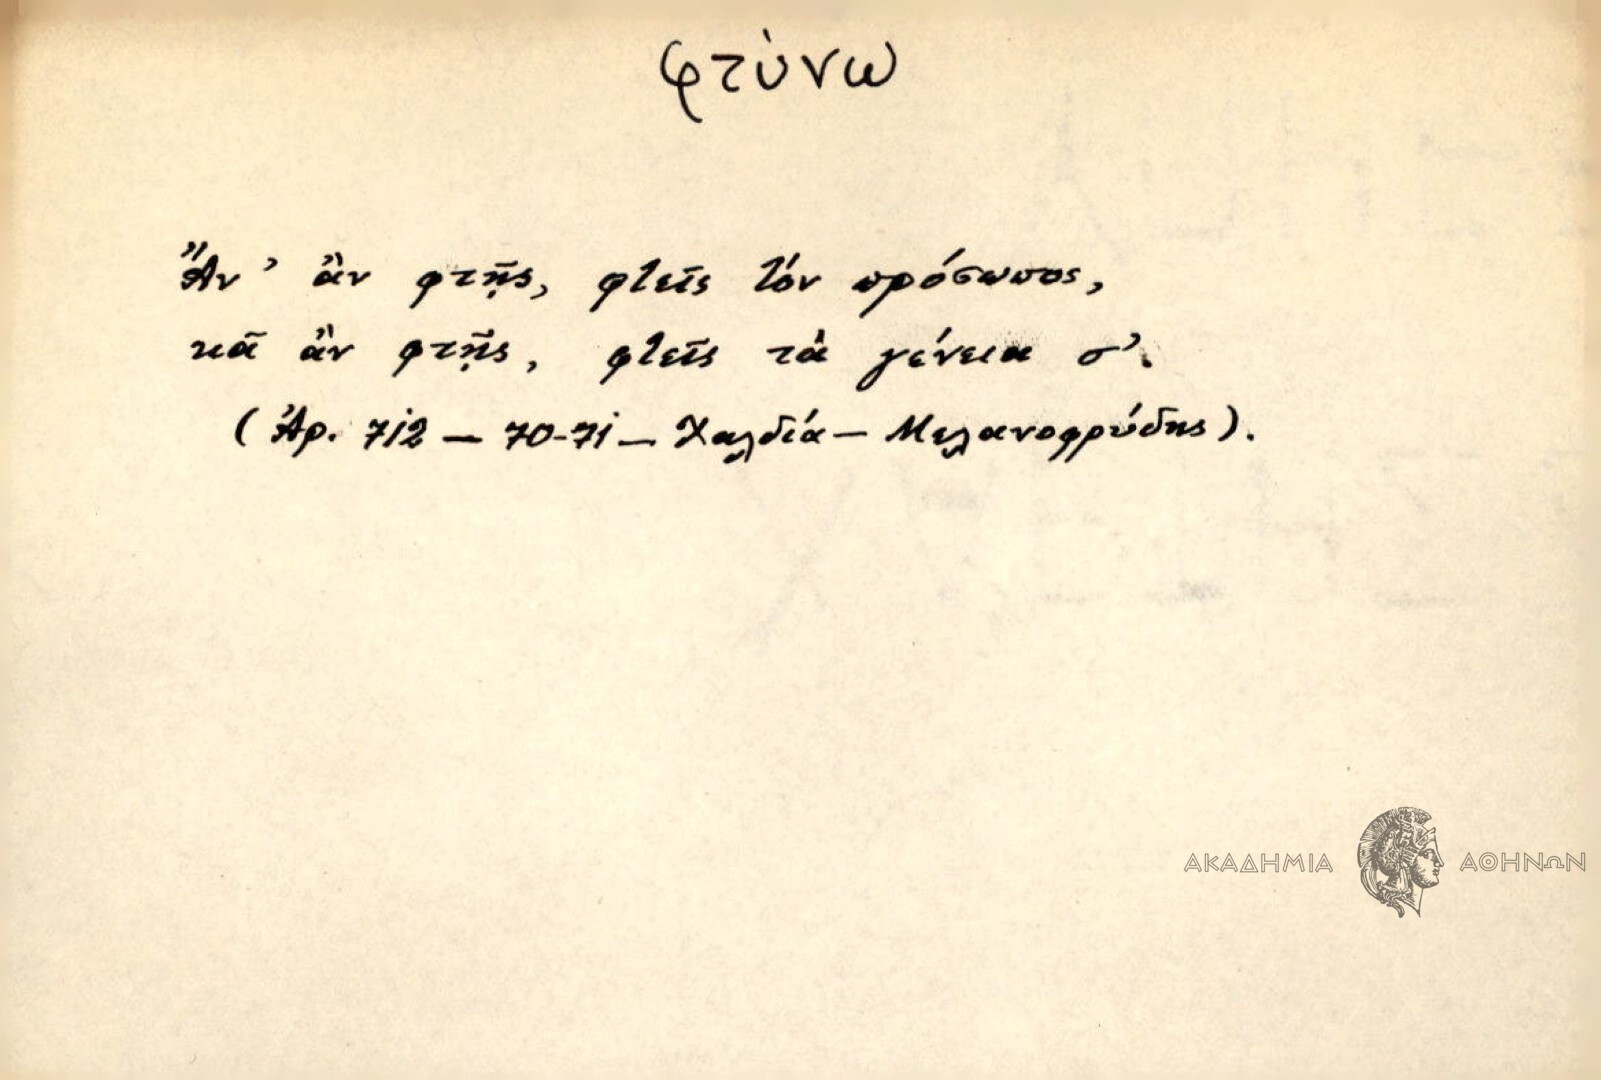 φτύνω
Ἄν' ἂν φτῇς, φτεῖς τόν πρόσωπος,
κᾶ ἂν φτῇς, φτεῖς τὰ γένεια σ'.
(Ἀρ. 712 — 70-71 — Χαλδία — Μελανοφρύδης).
ΑΚΑΔΗΜΙΑ ΑΘΗΝΩΝ